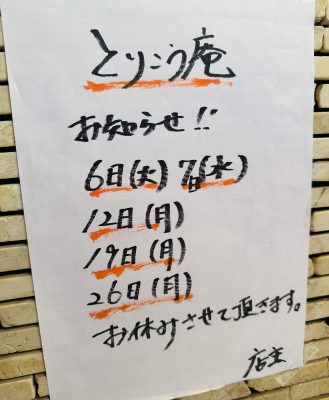 とりこう庵
お知らせ!!
6日(火) 7日(水)
12日(月)
19日(月)
26日(月)
お休みさせて頂きます。
店主